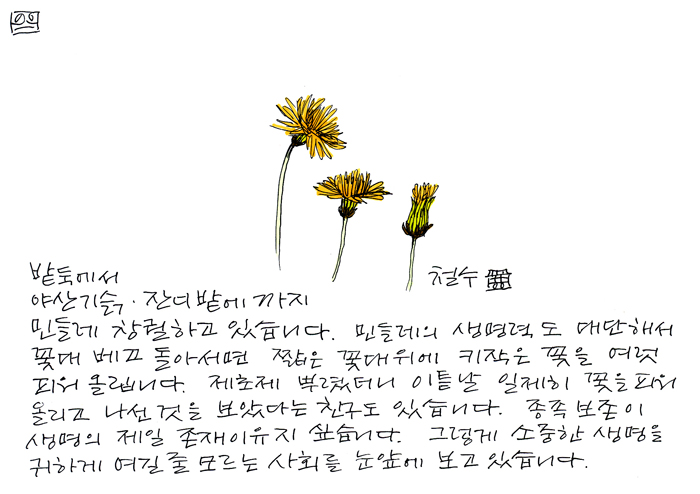 철수
밭둑에서
야산기슭, 잔디밭에 까지
민들레 창궐하고 있습니다. 민들레의 생명력도 대단해서
꽃대 베고 돌아서면 짧은 꽃대위에 키작은 꽃을 여럿
피워 올립니다. 제초제 뿌렸더니 이튿날 일제히 꽃을 피워
올리고 나선것을 보았다는 친구도 있습니다. 종족보존이
생명의 제일 존재이유지 싶습니다. 그렇게 소중한 생명을
귀하게 여길 줄 모르는 사회를 눈앞에 보고 있습니다.